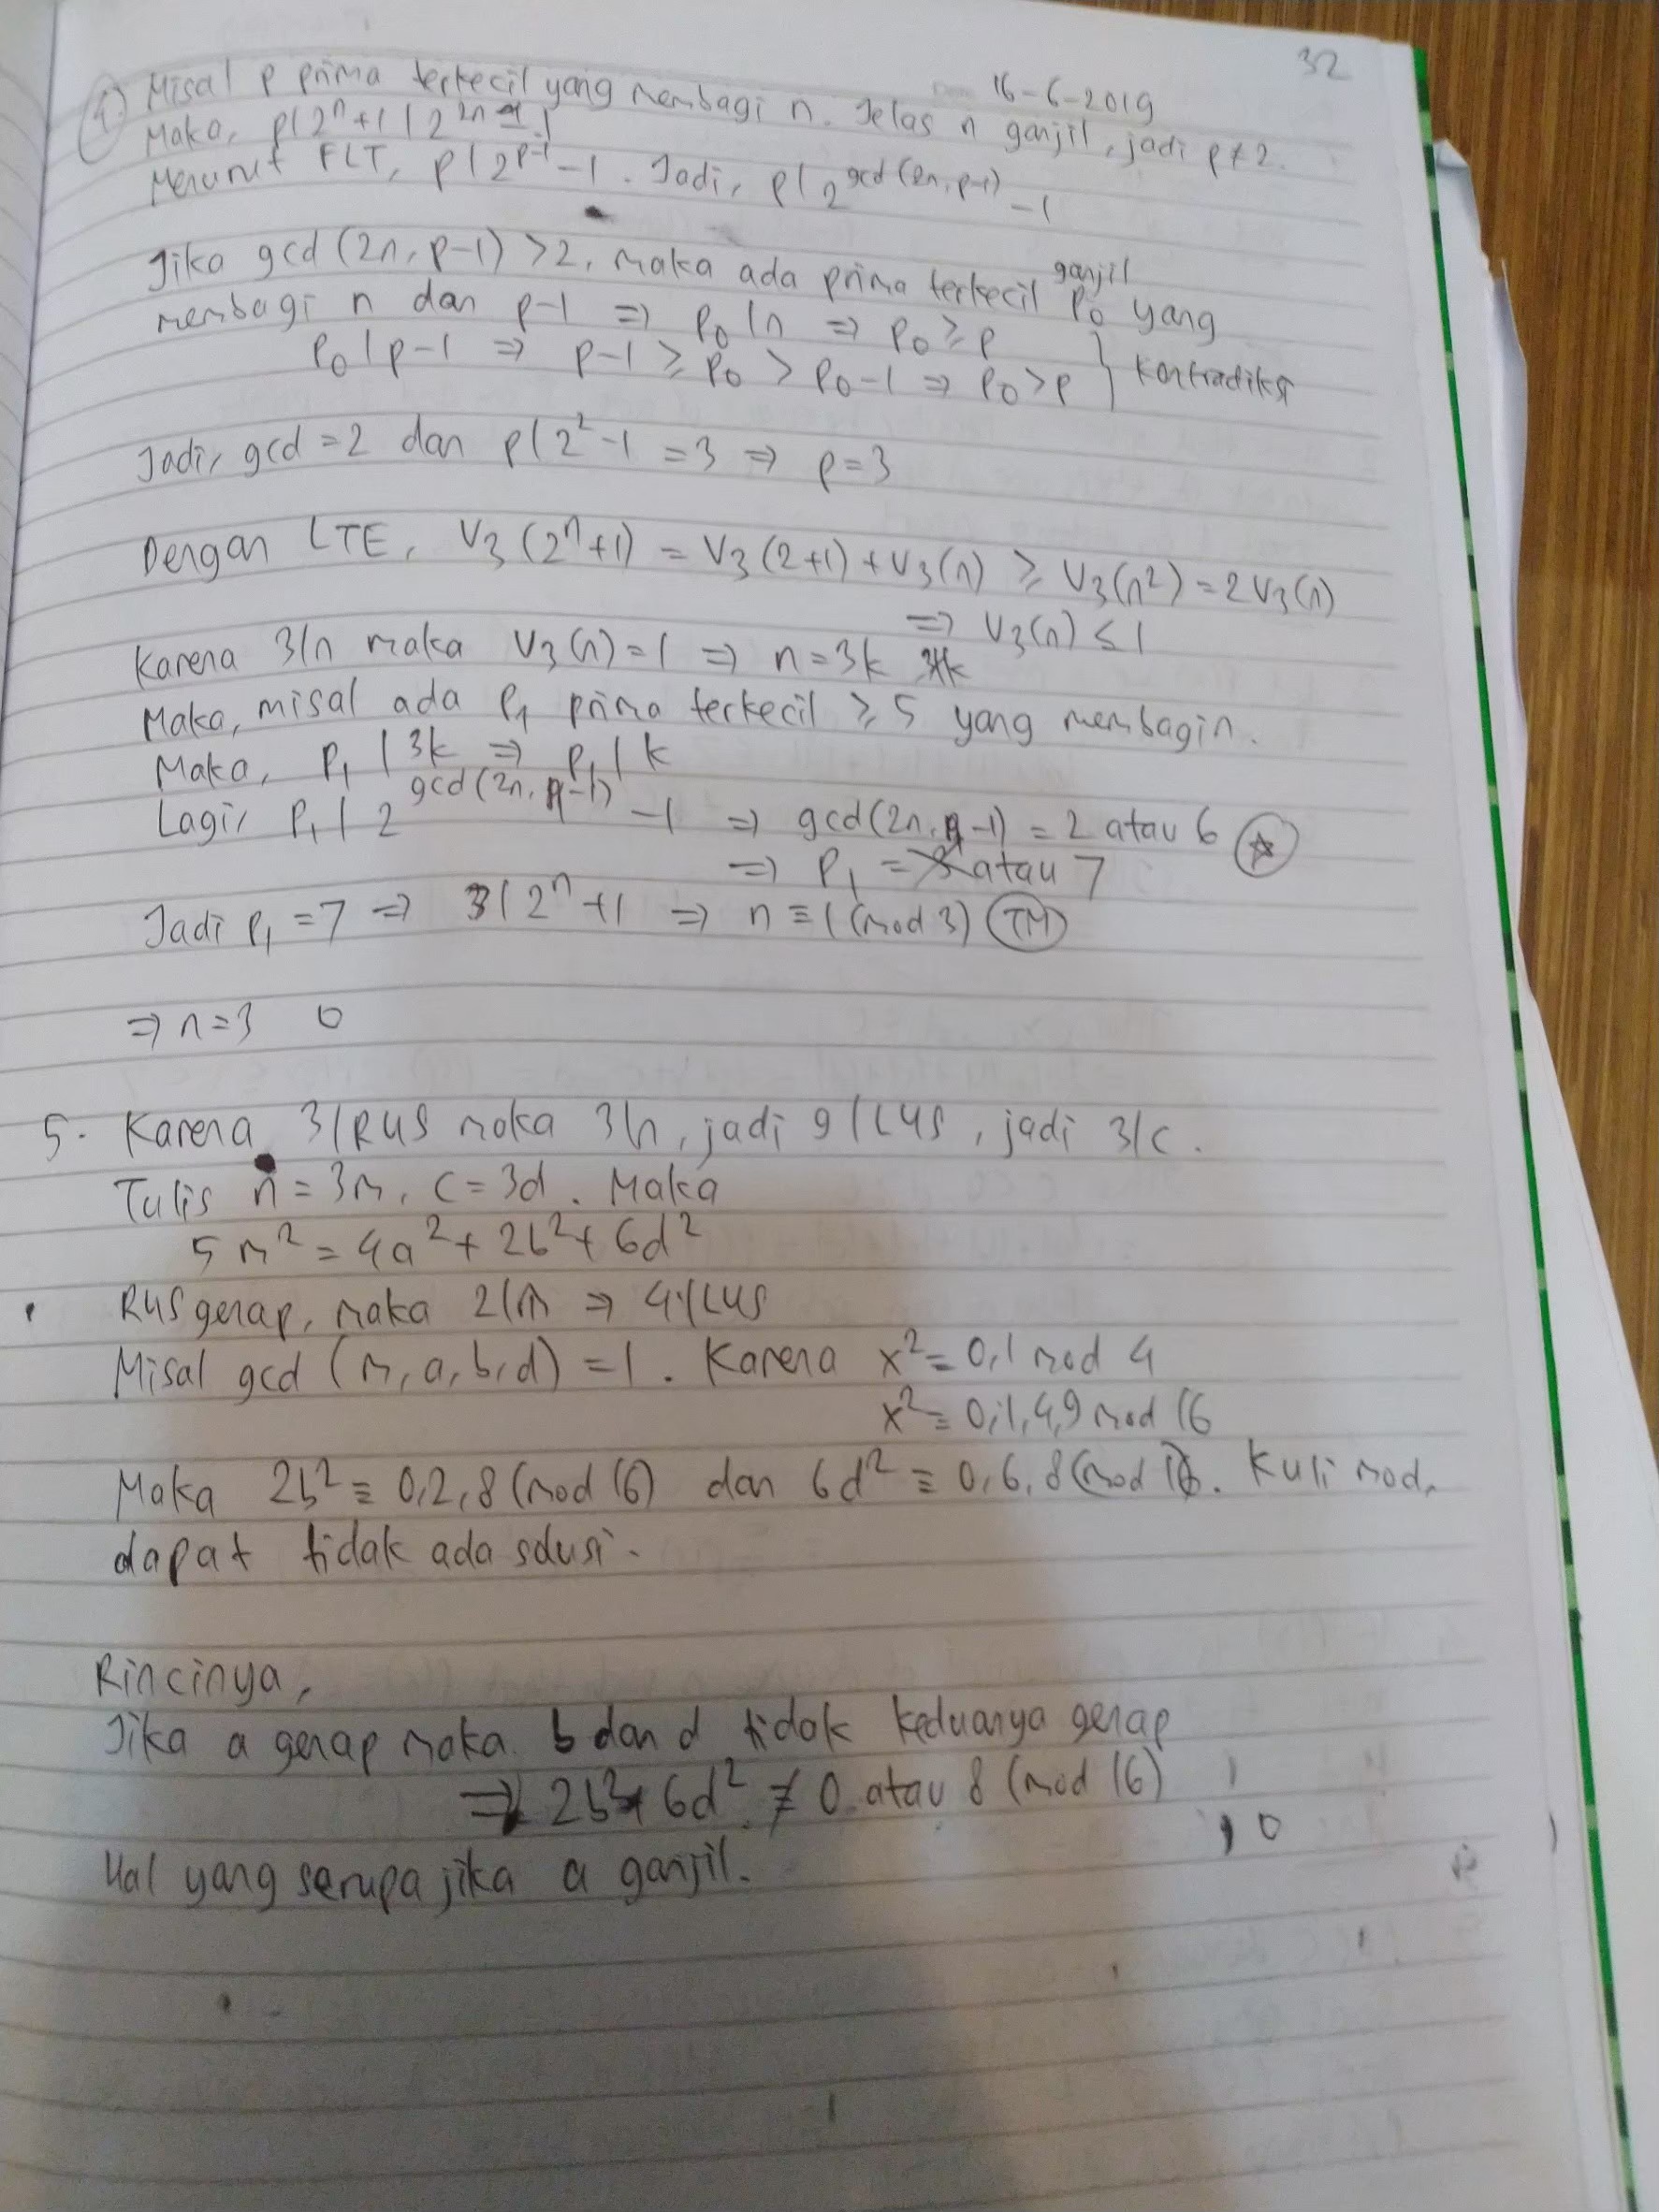 32
16-6-2019
4. Misal p prima terkecil yang membagi n. Jelas n ganjil, jadi p≠2.
Maka, p|2^n+1|2^{2n}-1
Menurut FLT, p|2^{p-1}-1. Jadi, p|2^{gcd(2n,p-1)}-1
Jika gcd(2n,p-1)>2, maka ada prima terkecil ganjil p₀ yang
membagi n dan p-1 ⇒ p₀|n ⇒ p₀≥p
p₀|p-1 ⇒ p-1≥p₀>p₀-1 ⇒ p₀>p } kontradiksi
Jadi, gcd=2 dan p|2²-1=3 ⇒ p=3
Dengan LTE, V₃(2^n+1) = V₃(2+1)+V₃(n) ≥ V₃(n²)=2V₃(n)
⇒ V₃(n)≤1
Karena 3|n maka V₃(n)=1 ⇒ n=3k 3∤k
Maka, misal ada p₁ prima terkecil ≥5 yang membagi n.
Maka, p₁|3k ⇒ p₁|k
Lagi, p₁|2^{gcd(2n,p₁-1)}-1 ⇒ gcd(2n,p₁-1)=2 atau 6 ☆
⇒ p₁ = 3 atau 7
Jadi p₁=7 ⇒ 3|2^n+1 ⇒ n≡1(mod 3) TM
⇒ n=3 0
5. Karena 3|RUS maka 3|n, jadi 9|LUS, jadi 3|c.
Tulis n=3m, c=3d. Maka
5m²=4a²+2b²+6d²
RUS genap, maka 2|m ⇒ 4|LUS
Misal gcd(m,a,b,d)=1. Karena x²≡0,1 mod 4
x²≡0,1,4,9 mod 16
Maka 2b²≡0,2,8(mod 16) dan 6d²≡0,6,8(mod 16). Kuli mod,
dapat tidak ada solusi.
Rincinya,
Jika a genap maka b dan d tidak keduanya genap
⇒ 2b²+6d²≢0 atau 8 (mod 16)
Hal yang serupa jika a ganjil.